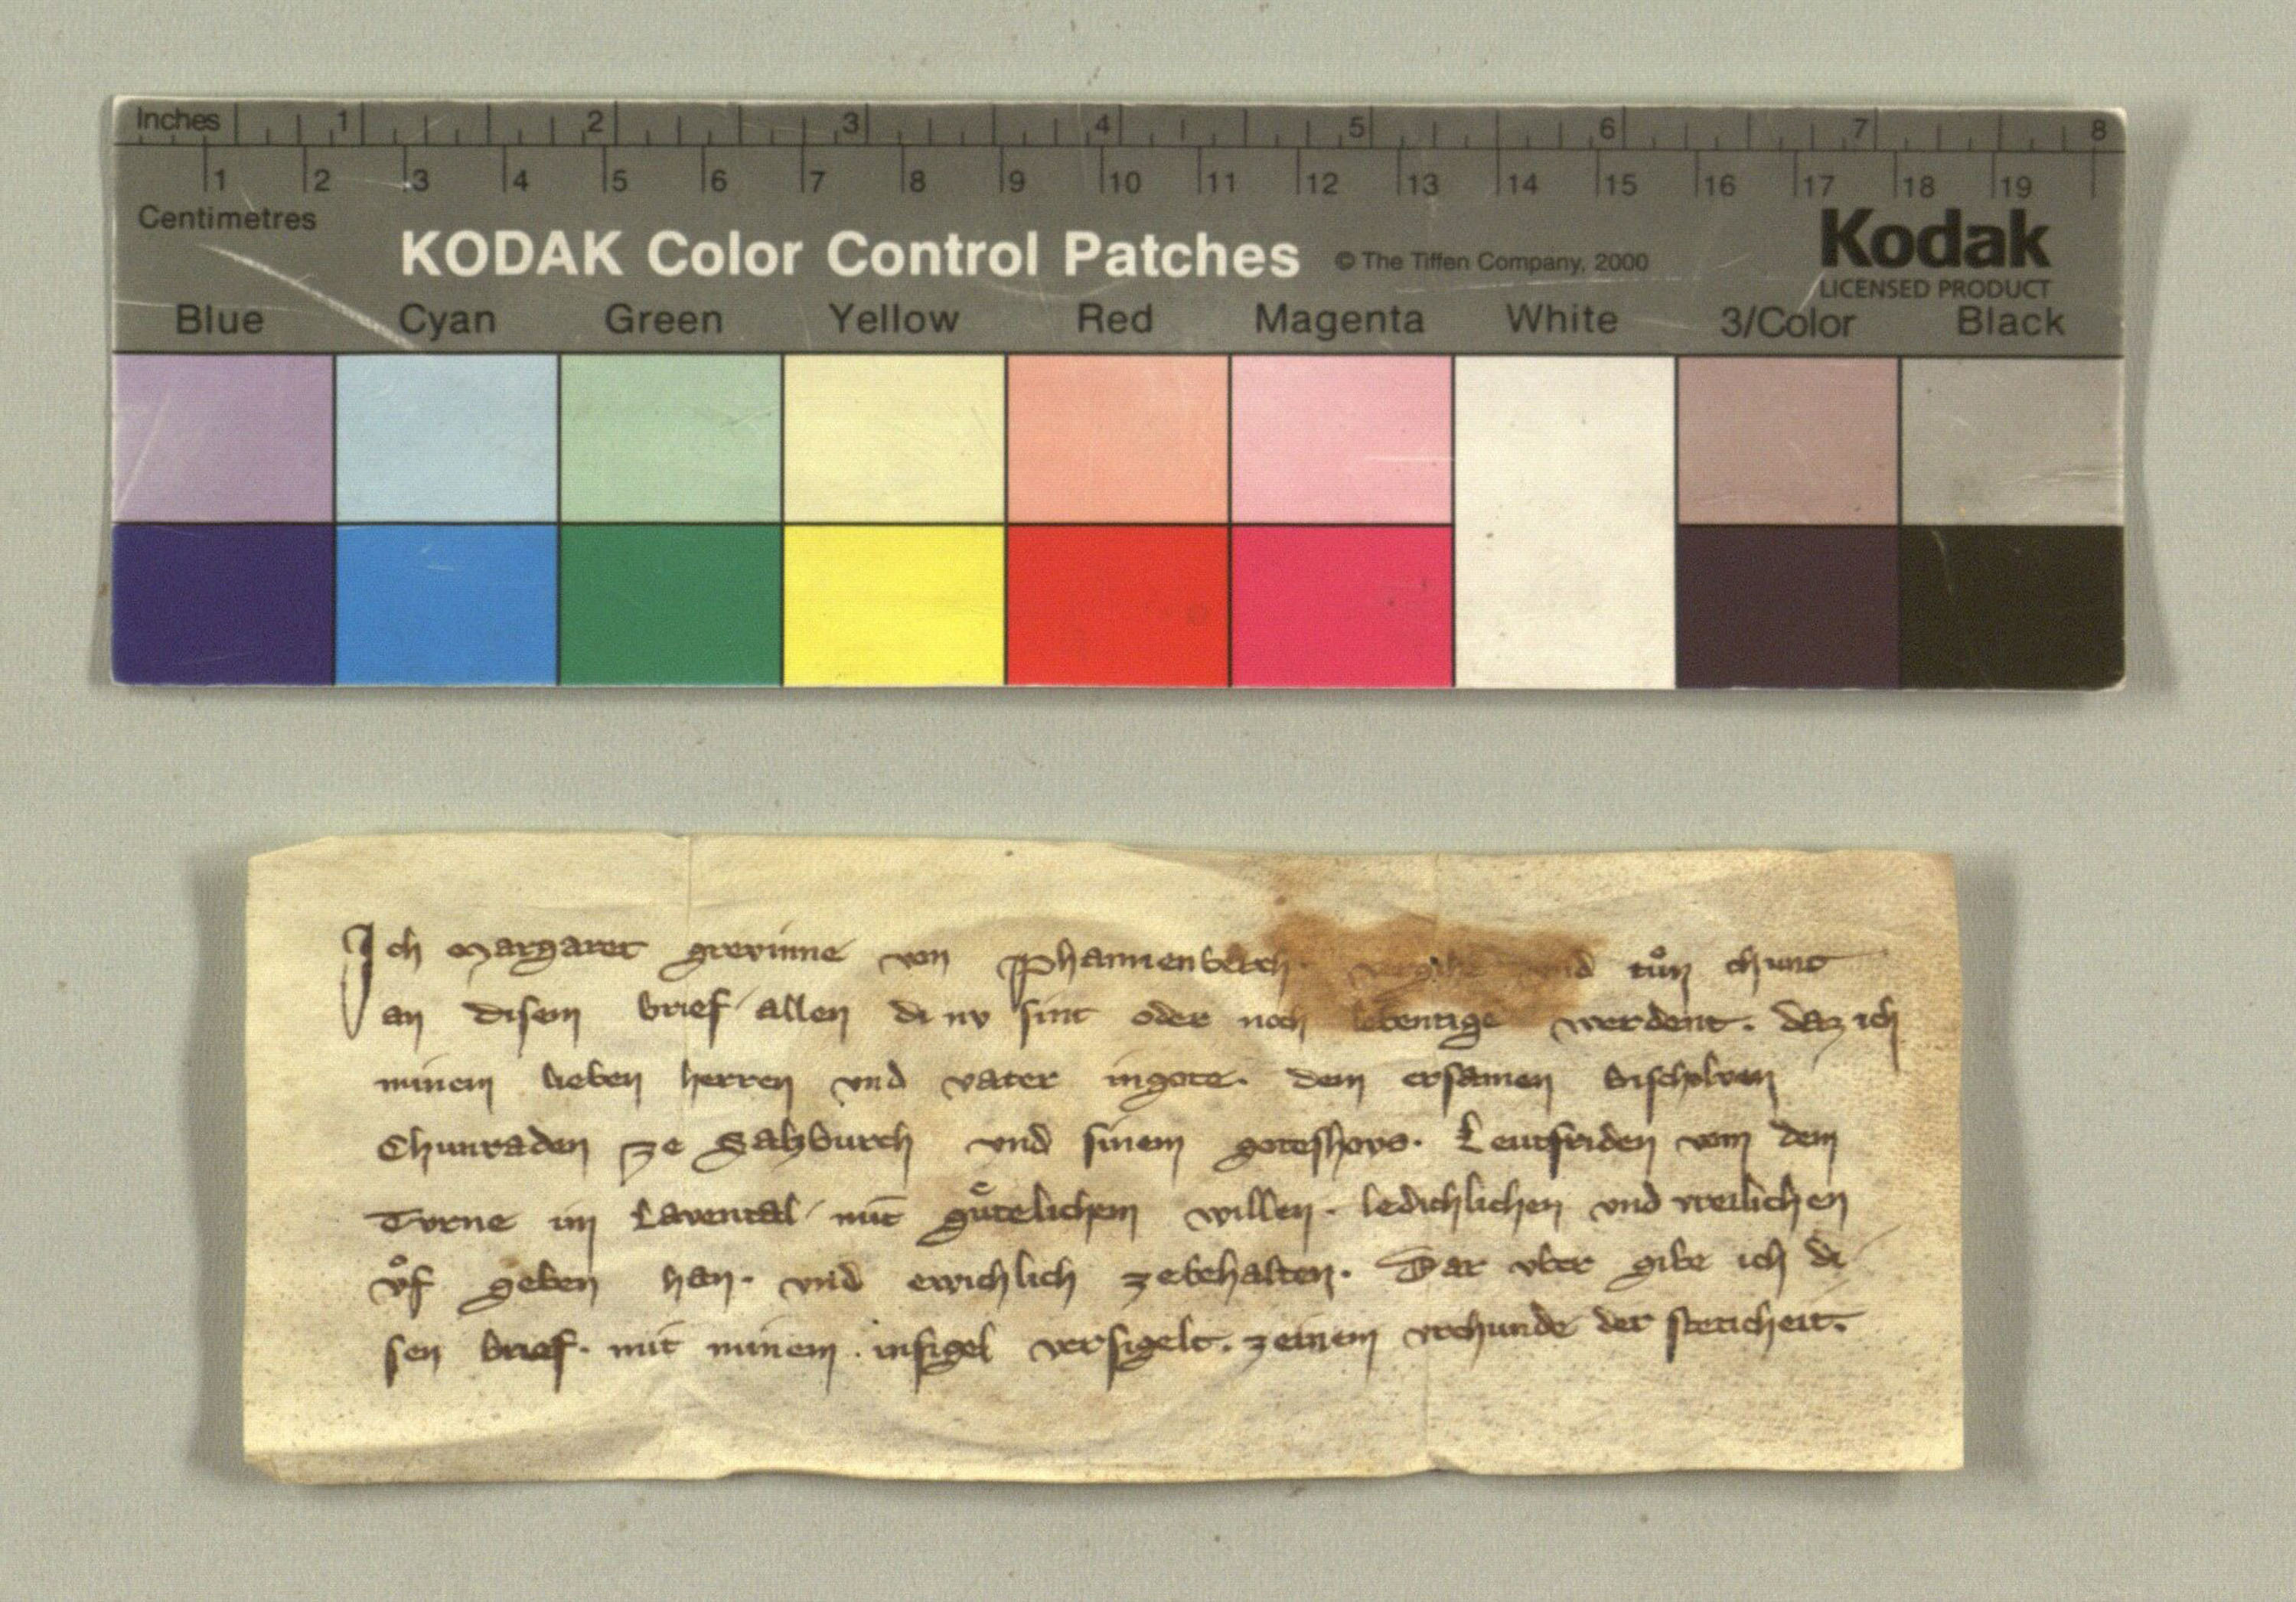 Inches 1 2 3 4 5 6 7 8
1 2 3 4 5 6 7 8 9 10 11 12 13 14 15 16 17 18 19
Centimetres
KODAK Color Control Patches © The Tiffen Company, 2000 Kodak
LICENSED PRODUCT
Blue Cyan Green Yellow Red Magenta White 3/Color Black
Ich Margaret grevinne von Phannenberch. vergihe vnd tůn chunt
an disem brief allen di nv sint oder noch lebentige werdent. daz ich
minem lieben herren vnd vater ingote. dem ersamen Bischolven
Chunraden ze Salzburch vnd sinem goteshovs. Leutfriden vom dem
Tvrne im Lavental mit gůtelichem willen. ledichlichen vnd vreilichen
vͦf geben han. vnd ewichlich zebehalten. Dar vber gibe ich di
sen brief. mit minem. insigel versigelt. zeinem vrchunde der steticheit.